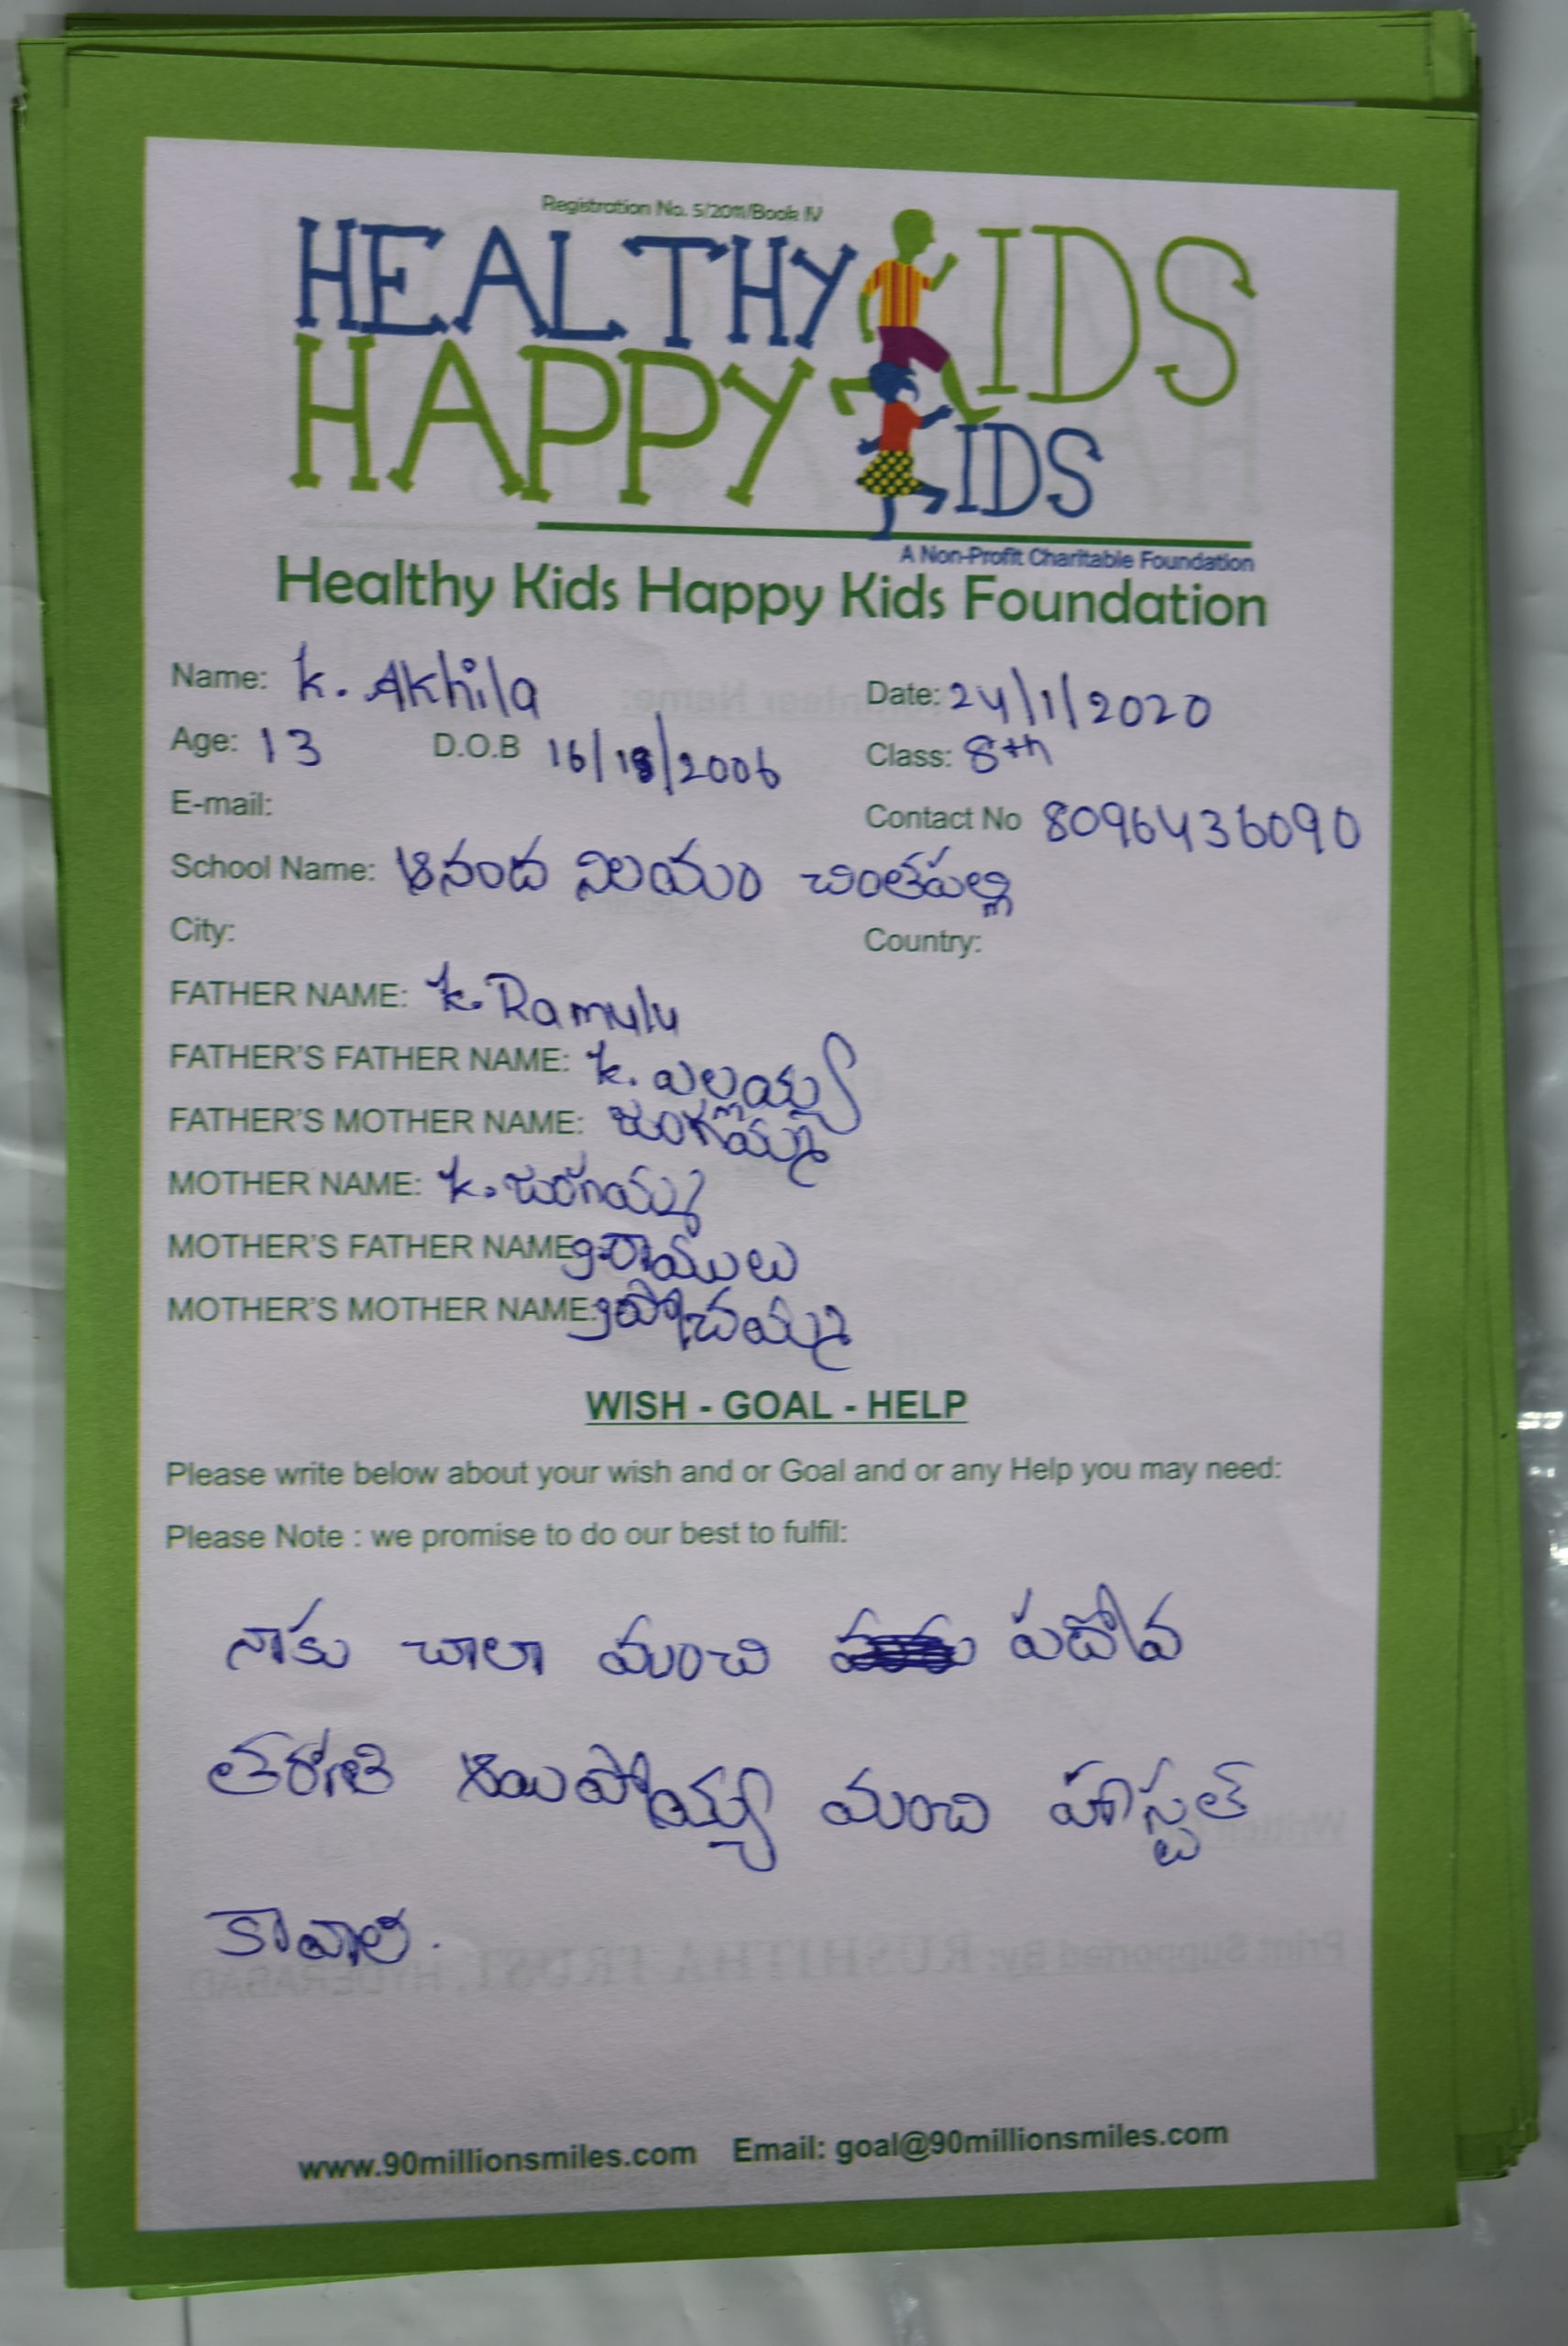 Registration No. 5/2011/Book IV
HEALTHY KIDS
HAPPY KIDS
A Non-Profit Charitable Foundation
Healthy Kids Happy Kids Foundation
Name: K. Akhila Date: 24/1/2020
Age: 13 D.O.B 16/18/2006 Class: 8th
E-mail: Contact No 8096436090
School Name: ఆనంద నిలయం చింతపల్లి
City: Country:
FATHER NAME: K. Ramulu
FATHER'S FATHER NAME: K. ఎల్లయ్య
FATHER'S MOTHER NAME: జంగమ్మ
MOTHER NAME: K. జంగమ్మ
MOTHER'S FATHER NAME: రాములు
MOTHER'S MOTHER NAME: పోచమ్మ
WISH - GOAL - HELP
Please write below about your wish and or Goal and or any Help you may need:
Please Note : we promise to do our best to fulfil:
నాకు చాలా మంచి పదోవ
తరగతి అయిపోయ్య మంచి హాస్టల్
కావాలి.
www.90millionsmiles.com Email: goal@90millionsmiles.com